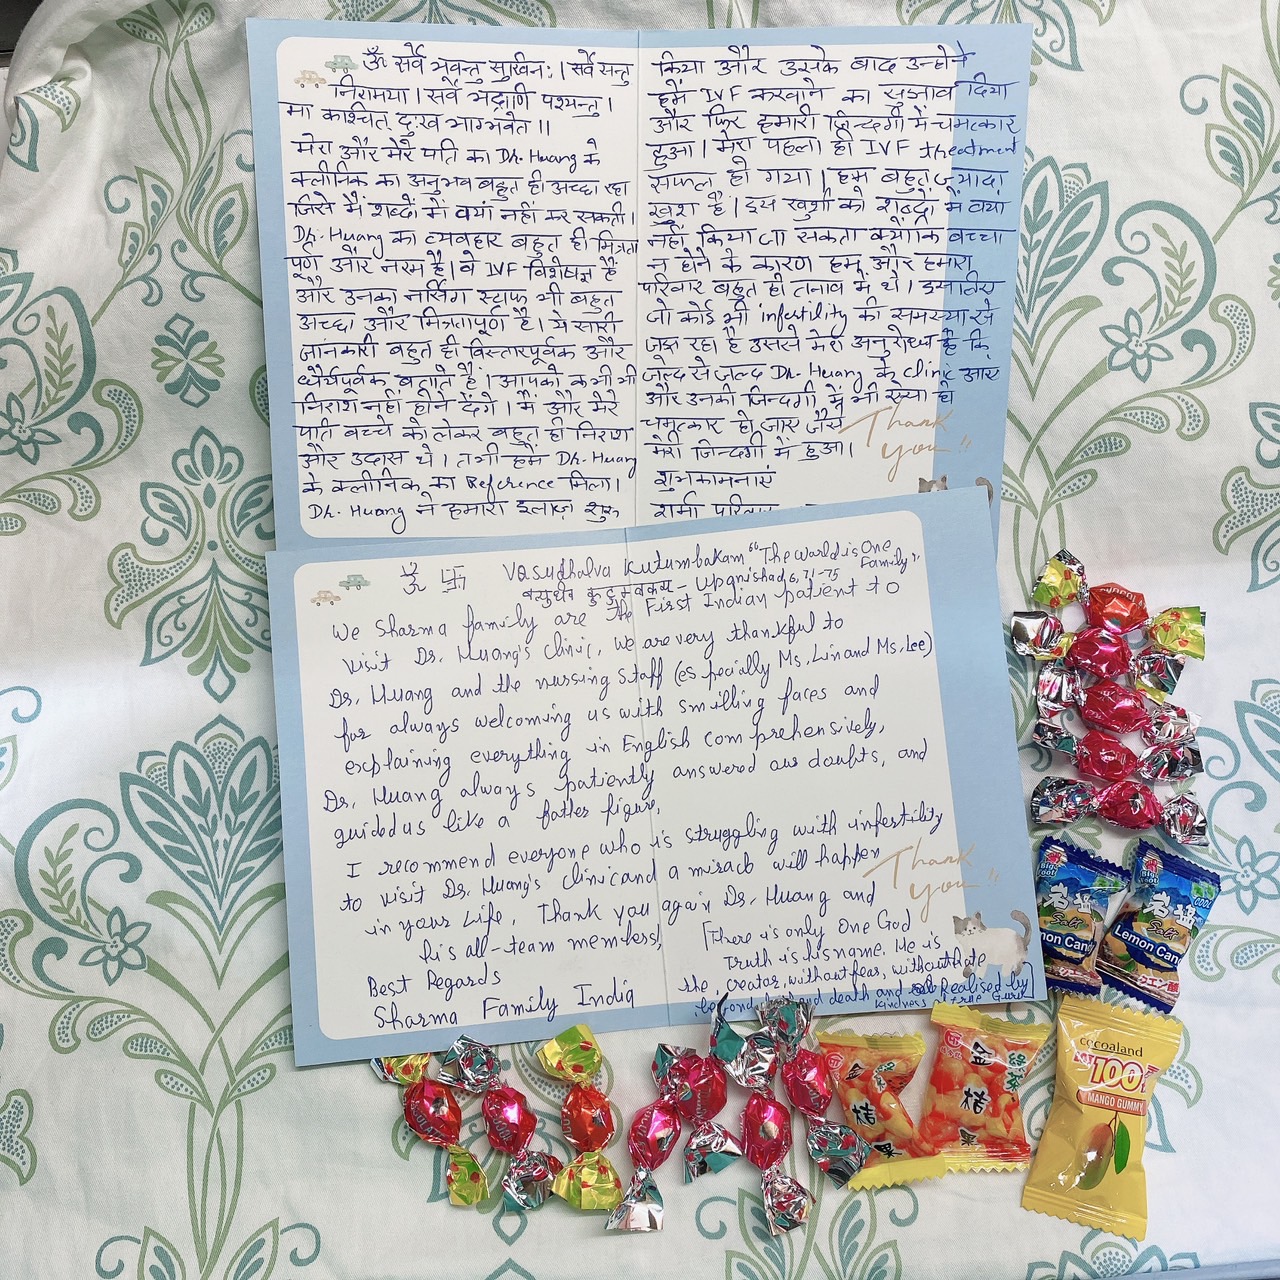 ॐ सर्वे भवन्तु सुखिनः। सर्वे सन्तु
निरामया। सर्वे भद्राणि पश्यन्तु।
मा कश्चित् दुःख भाग्भवेत॥
मेरा और मेरे पति का Dr. Huang के
क्लीनिक का अनुभव बहुत ही अच्छा रहा
जिसे मैं शब्दों में बयां नहीं कर सकती।
Dr. Huang का व्यवहार बहुत ही मित्रता
पूर्ण और नरम है। वे IVF विशेषज्ञ हैं
और उनका नर्सिंग स्टाफ भी बहुत
अच्छा और मित्रतापूर्ण है। ये सारी
जानकारी बहुत ही विस्तारपूर्वक और
धैर्यपूर्वक बताते हैं। आपको कभी भी
निराश नहीं होने देंगे। मैं और मेरे
पति बच्चे को लेकर बहुत ही निराश
और उदास थे। तभी हमें Dr. Huang
के क्लीनिक का Reference मिला।
Dr. Huang ने हमारा इलाज़ शुरू
किया और उसके बाद उन्होंने
हमें IVF करवाने का सुझाव दिया
और फिर हमारी जिन्दगी में चमत्कार
हुआ। मेरा पहला ही IVF treatment
सफल हो गया। हम बहुत ज्यादा
खुश हैं। इस खुशी को शब्दों में बयां
नहीं किया जा सकता क्योंकि बच्चा
न होने के कारण हम और हमारा
परिवार बहुत ही तनाव में थे। इसलिए
जो कोई भी infertility की समस्या से
जूझ रहा है उससे मेरा अनुरोध है कि
जल्द से जल्द Dr. Huang के clinic आए
और उनकी जिन्दगी में भी ऐसा ही
चमत्कार हो जाए जैसे
मेरी जिन्दगी में हुआ।
शुभकामनाएं
शर्मा परिवार
Thank
you
ॐ 卐 Vasudhaiva Kutumbakam "The world is One
Family"
वसुधैव कुटुम्बकम - Upanishad 6, 71-75
We Sharma family are the First Indian patient to
visit Dr. Huang's clinic, we are very thankful to
Dr. Huang and the nursing staff (especially Ms. Lin and Ms. Lee)
for always welcoming us with smilling faces and
explaining everything in English comprehensively,
Dr. Huang always patiently answered our doubts, and
guided us like a father figure,
I recommend everyone who is struggling with infertility
to visit Dr. Huang's clinic and a miracle will happen
in your life. Thank you again Dr. Huang and
his all-team members,
Best Regards
Sharma Family India
[There is only One God
Truth is his name. He is
the, creator, without fear, without hate
beyond and death and Realised by
kindness of true Guru]
Thank
you
Big
Foot
岩塩
Salt
Lemon Candy
Big
Foot
COOL
岩塩
Salt
Lemon Candy
クエン酸
cocoaland
100
MANGO GUMMY
金
桔
金
桔
果